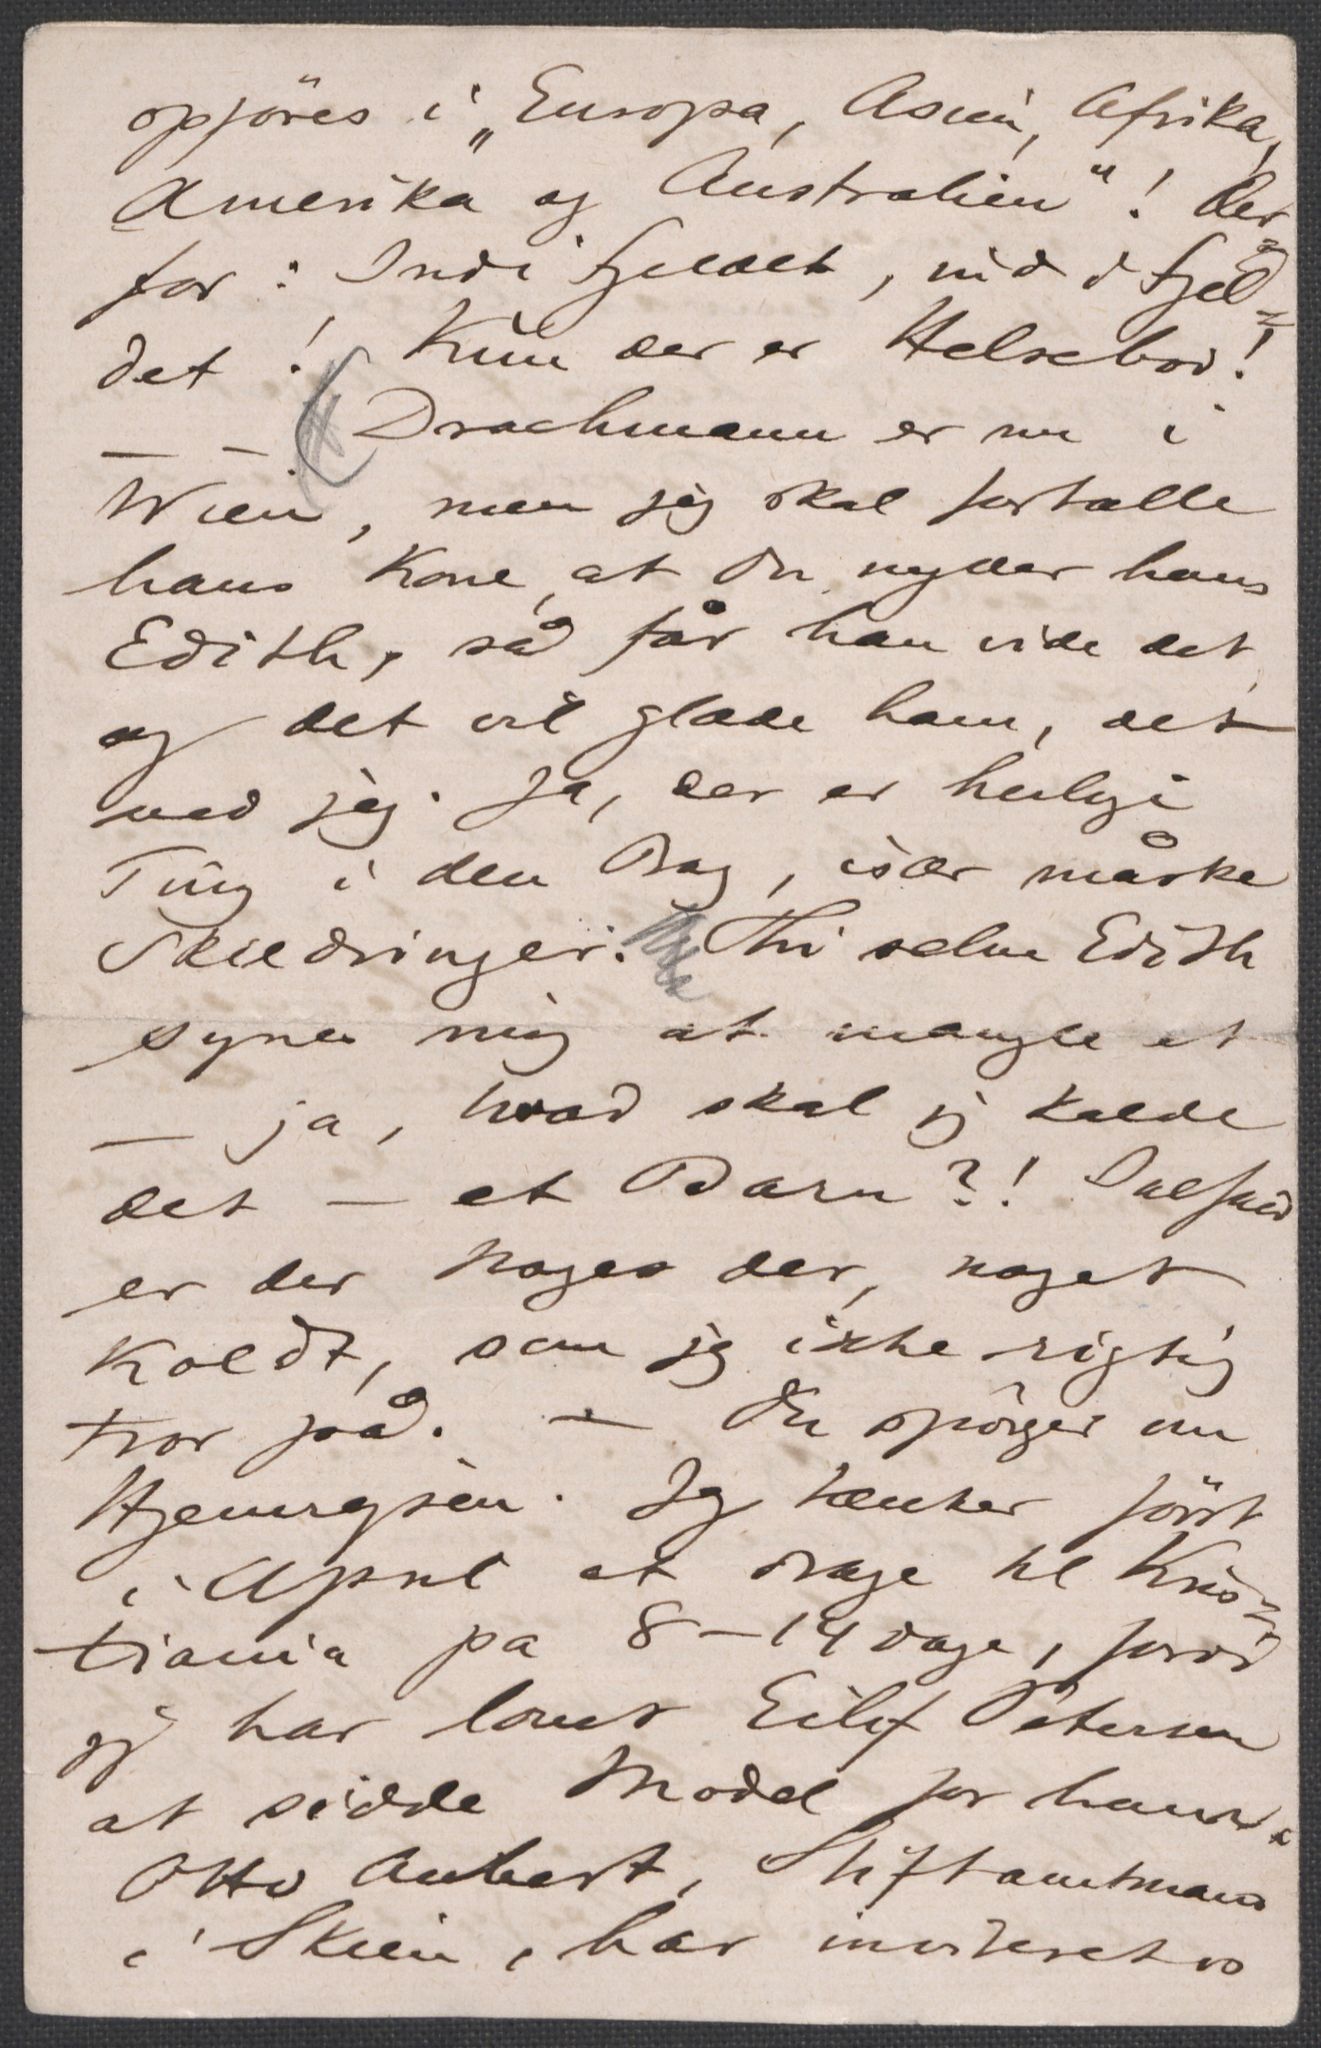 opföres i „Europa, Asien, Afrika,
Amerika og Australien“! Der-
for: Ind i Fjeldet, ind i Fjel-
det! Kun der er Helsebod!
— — (Drachmann er nu i
Wien, men jeg skal fortælle
hans Kone, at Du nyder hans
Edith, så får han vide det,
og det vil glæde ham, det
ved jeg. Ja, der er herlige
Ting i den Bog, især måske
Skildringer. Thi selve Edith
synes mig at mangle et
— ja, hvad skal jeg kalde
det — et Barn?! Ialfald
er der noget der, noget
koldt, som jeg ikke rigtig
tror på. — Du spörger om
Hjemrejsen. Jeg tænker först
i April at drage til Kris-
tiania pa 8–14 dage, fordi
jeg har lovet Eilif Petersen
at sidde Model for ham.
Otto Aubert, Stiftamtmand
i Skien, har inviteret os